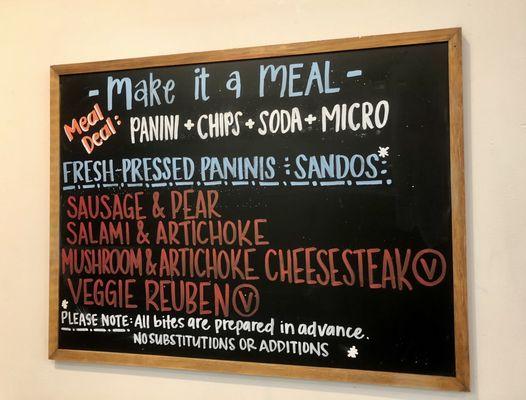 - Make it a MEAL -
Meal Deal: PANINI + CHIPS + SODA + MICRO
FRESH-PRESSED PANINIS & SANDOS*
SAUSAGE & PEAR
SALAMI & ARTICHOKE
MUSHROOM & ARTICHOKE CHEESESTEAK Ⓥ
VEGGIE REUBEN Ⓥ
* PLEASE NOTE: All bites are prepared in advance.
NO SUBSTITUTIONS OR ADDITIONS *